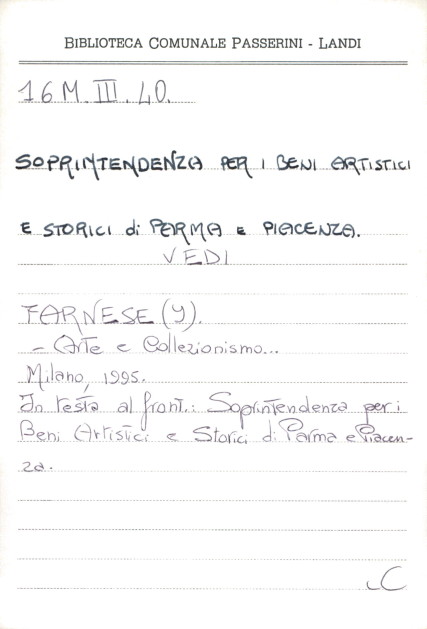 BIBLIOTECA COMUNALE PASSERINI - LANDI
16 M. III. 40.
SOPRINTENDENZA PER I BENI ARTISTICI
E STORICI di PARMA E PIACENZA.
VEDI
FARNESE (I).
- Arte e Collezionismo...
Milano, 1995.
In testa al front.: Soprintendenza per i
Beni Artistici e Storici di Parma e Piacen-
za.